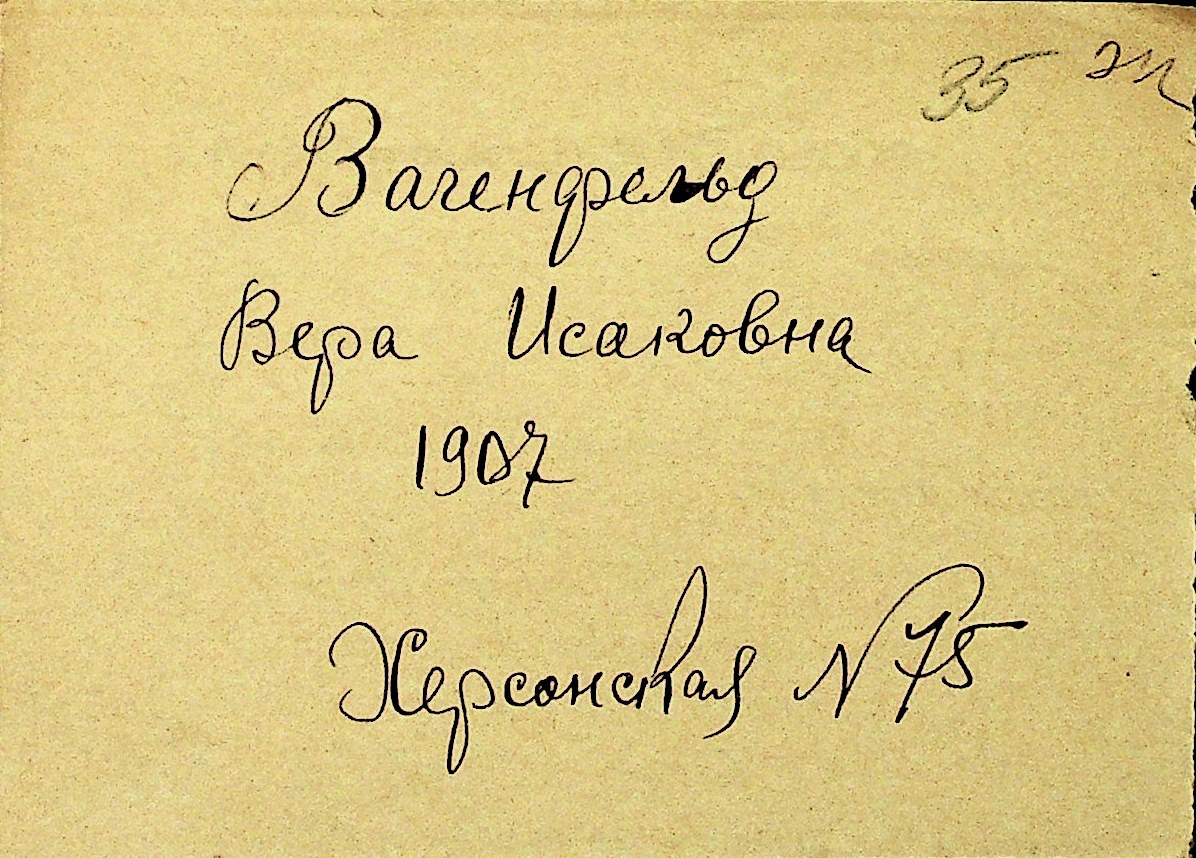 35
Вагенфельд
Вера Исаковна
1907
Херсонская N 75